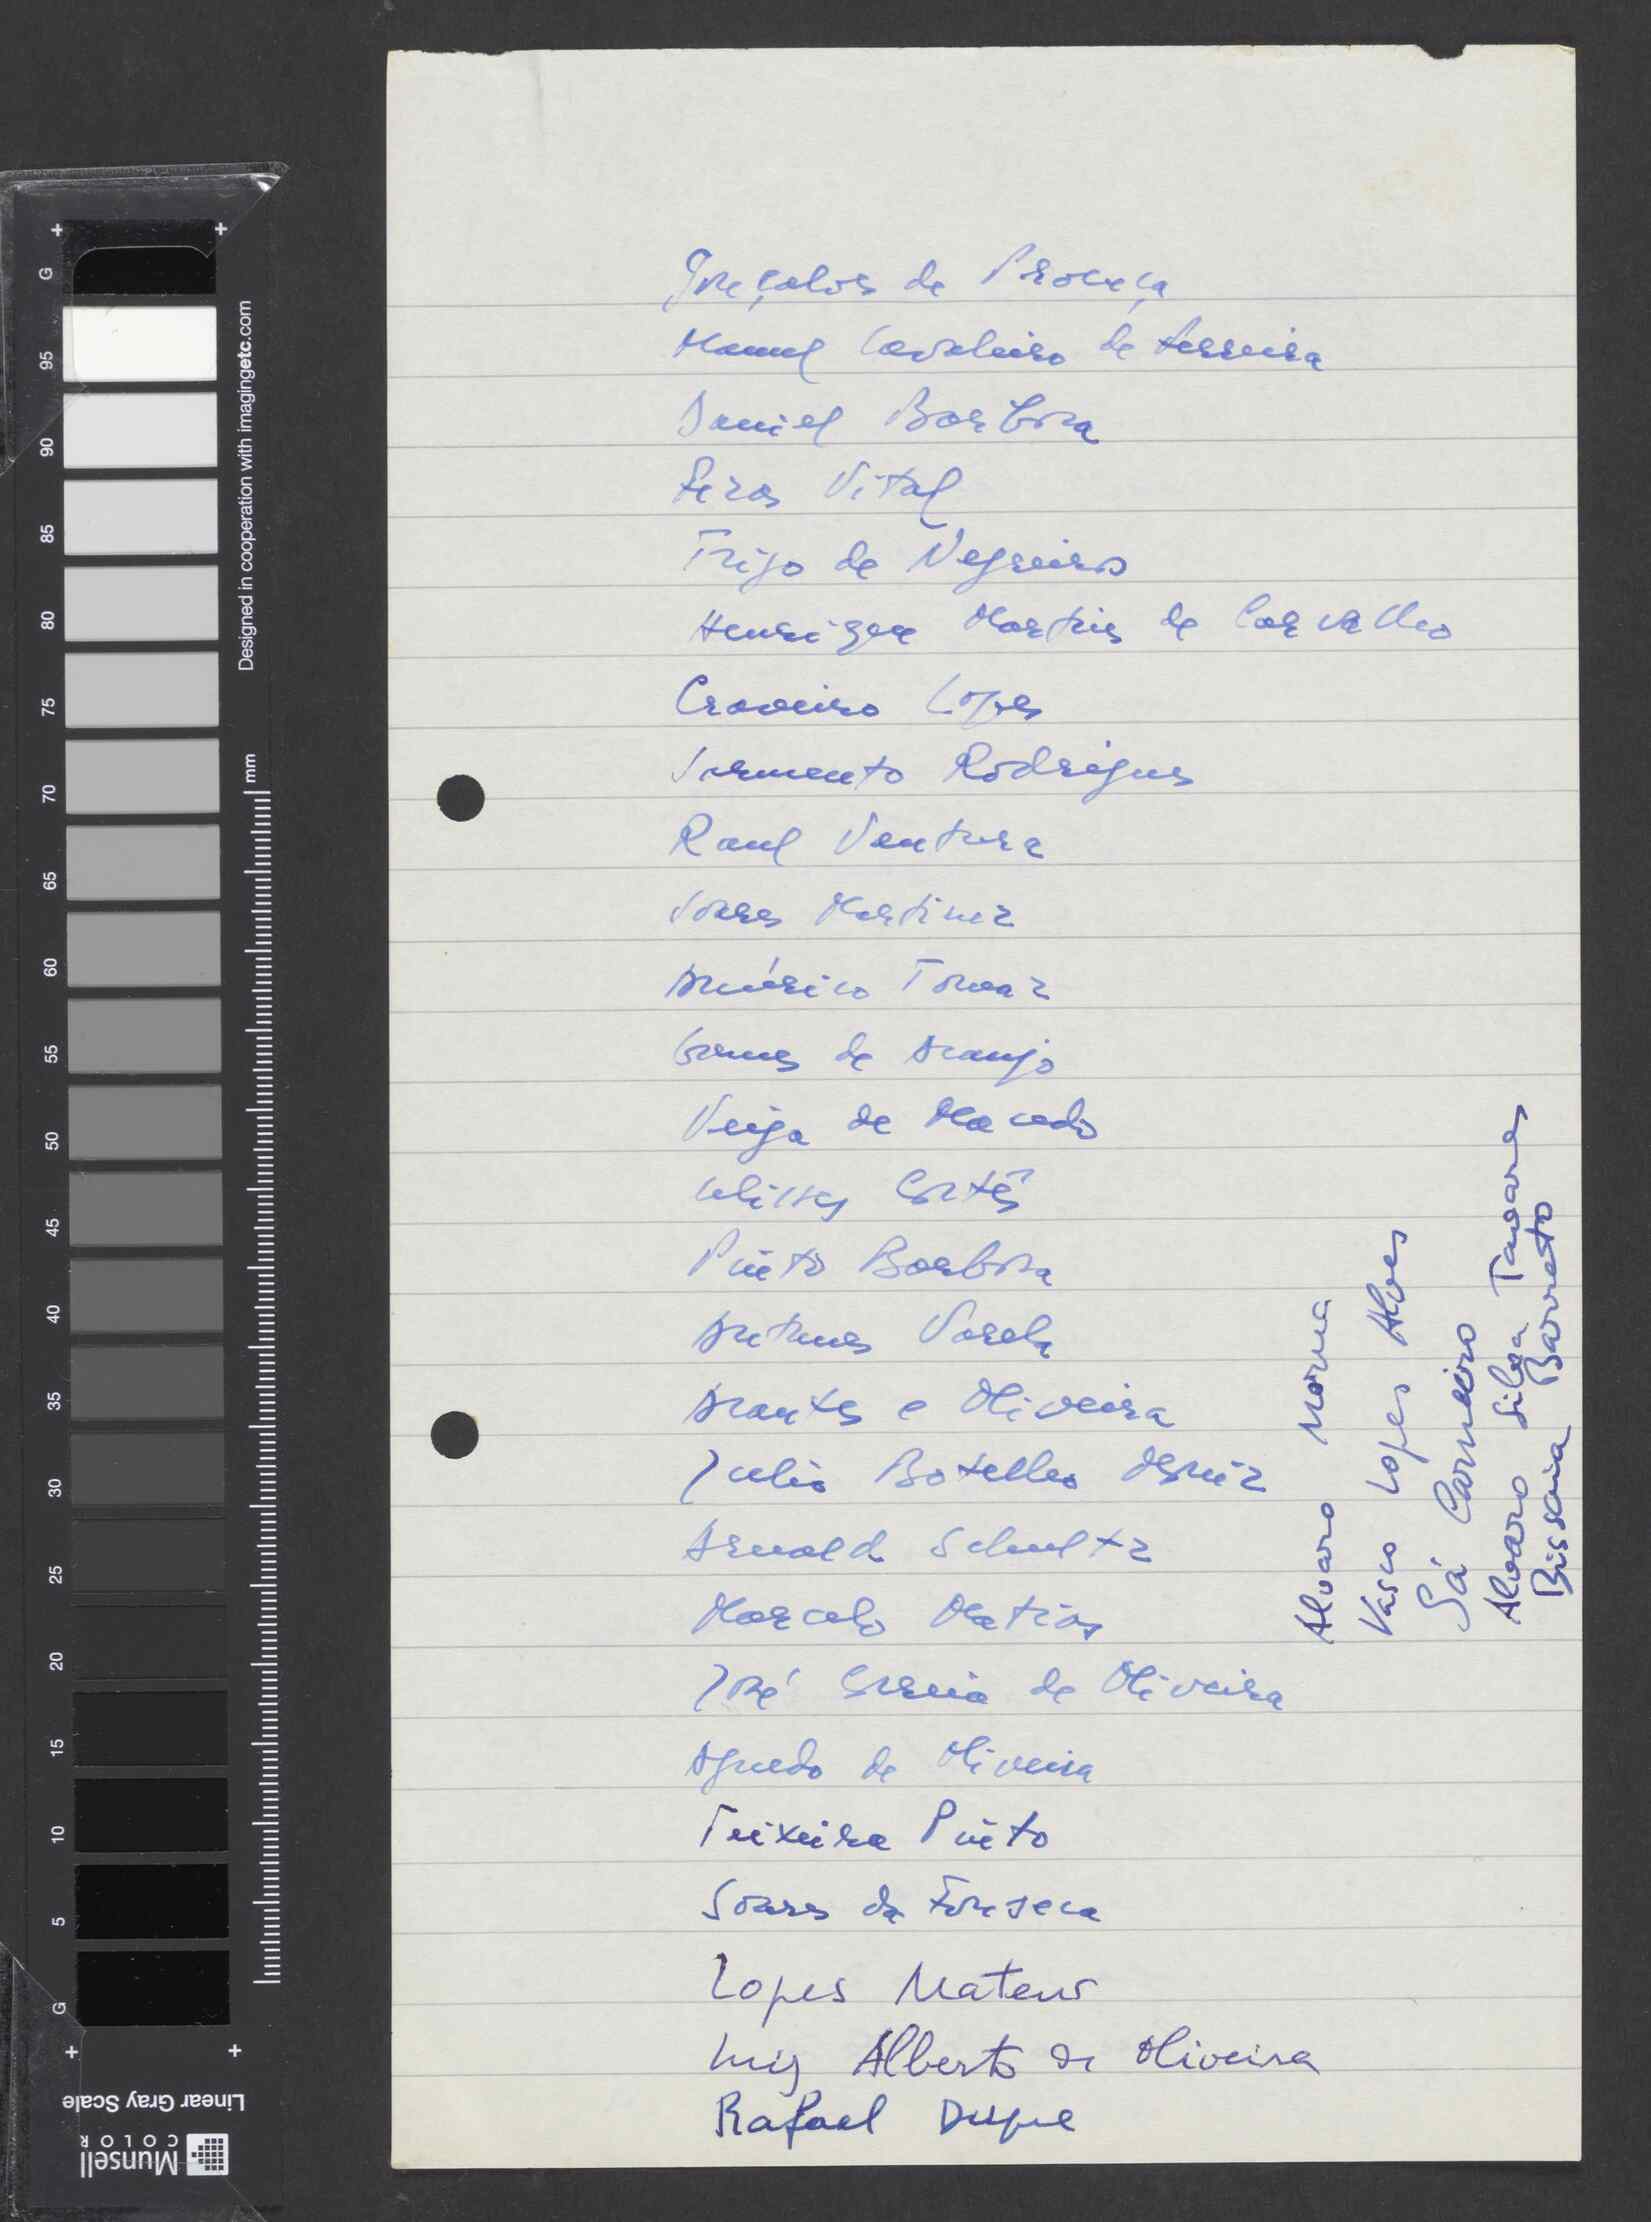 Gonçalves de Proença
Manuel Cavaleiro de Ferreira
Daniel Barbosa
Fezas Vital
Trigo de Negreiros
Henrique Martins de Carvalho
Craveiro Lopes
Sarmento Rodrigues
Raul Ventura
Soares Martinez
Américo Tomaz
Gomes de Araujo
Veiga de Macedo
Ulisses Cortês
Pinto Barbosa
Antunes Varela
Arantes e Oliveira
Julio Botelho Moniz
Arnaldo Schultz
Marcelo Matias
José Correia de Oliveira
Aguedo de Oliveira
Teixeira Pinto
Soares da Fonseca
Lopes Mateus
Luiz Alberto de Oliveira
Rafael Duque
Alvaro Morna
Vasco Lopes Alves
Sá Carneiro
Alvaro Silva Tavares
Bissaia Barreto
Designed in cooperation with imagingetc.com
mm
G
95
90
85
80
75
70
65
60
55
50
45
40
35
30
25
20
15
10
5
G
Linear Gray Scale
Munsell
COLOR